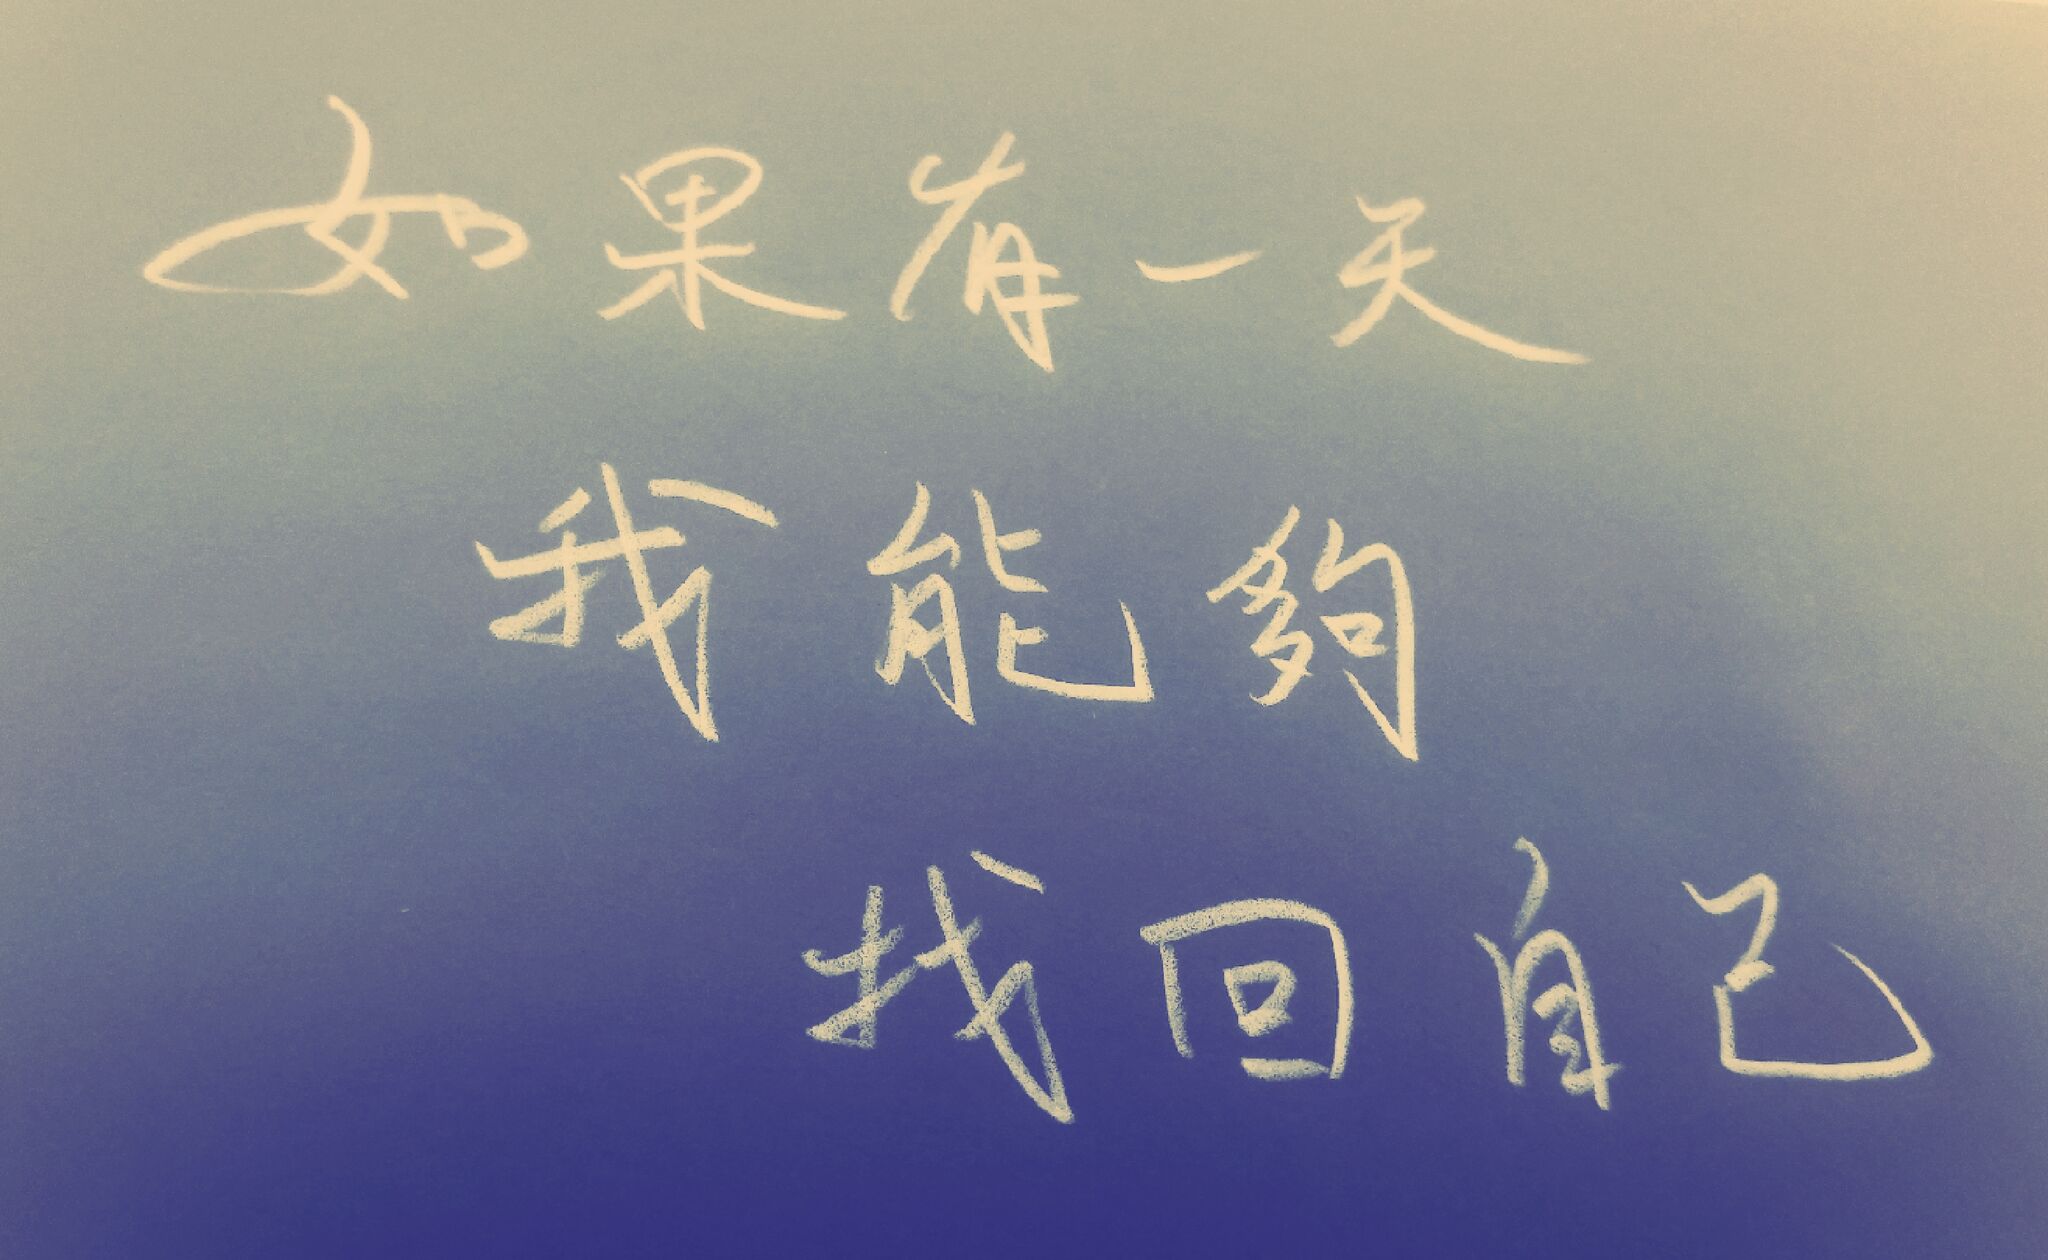 如果有一天
我能夠
找回自己